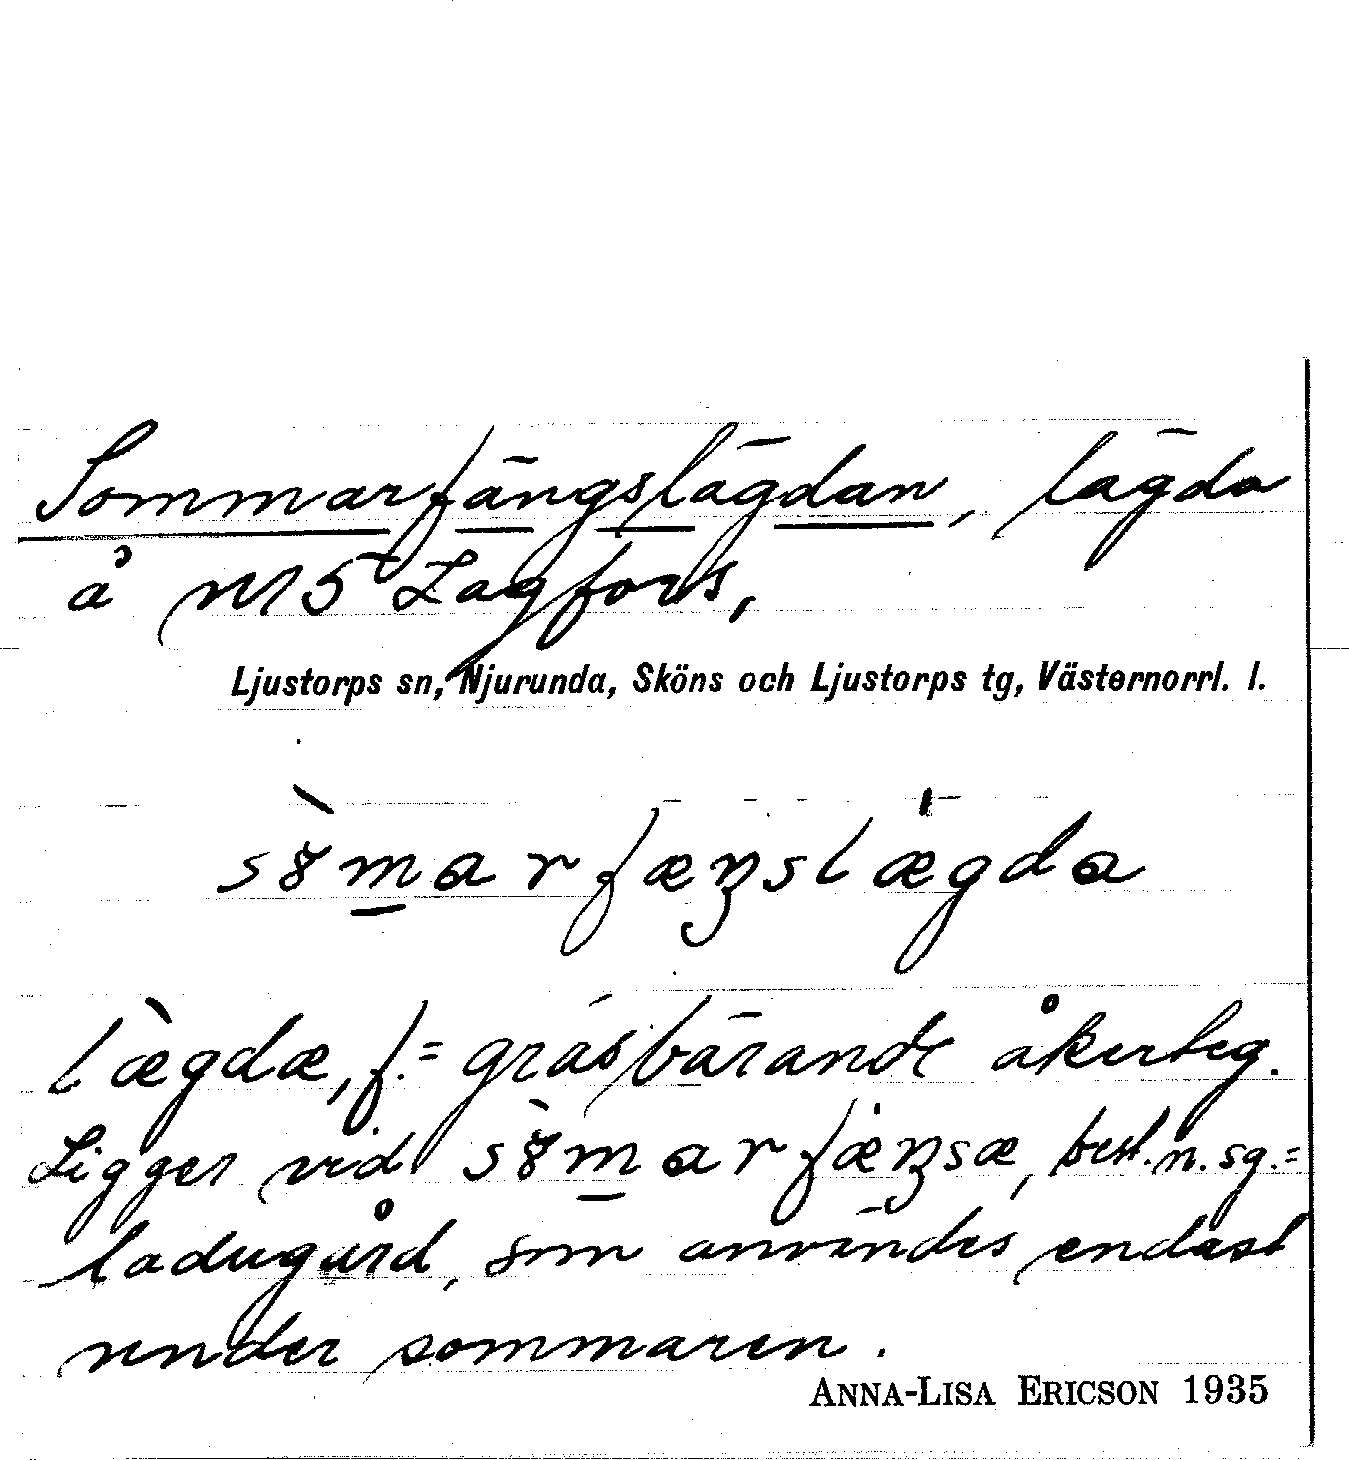 Sommarfängslägdan, lägda
å nr 5 Lagfors,
Ljustorps sn, Njurunda, Sköns och Ljustorps tg, Västernorrl. l.
sȣ̀marfæŋslægda
læ̀gdæ, f. = gräsbärande åkerteg.
Ligger vid sȣ̀marfæŋsæ, best. n. sg. =
ladugård, som användes endast
under sommaren.
ANNA-LISA ERICSON 1935